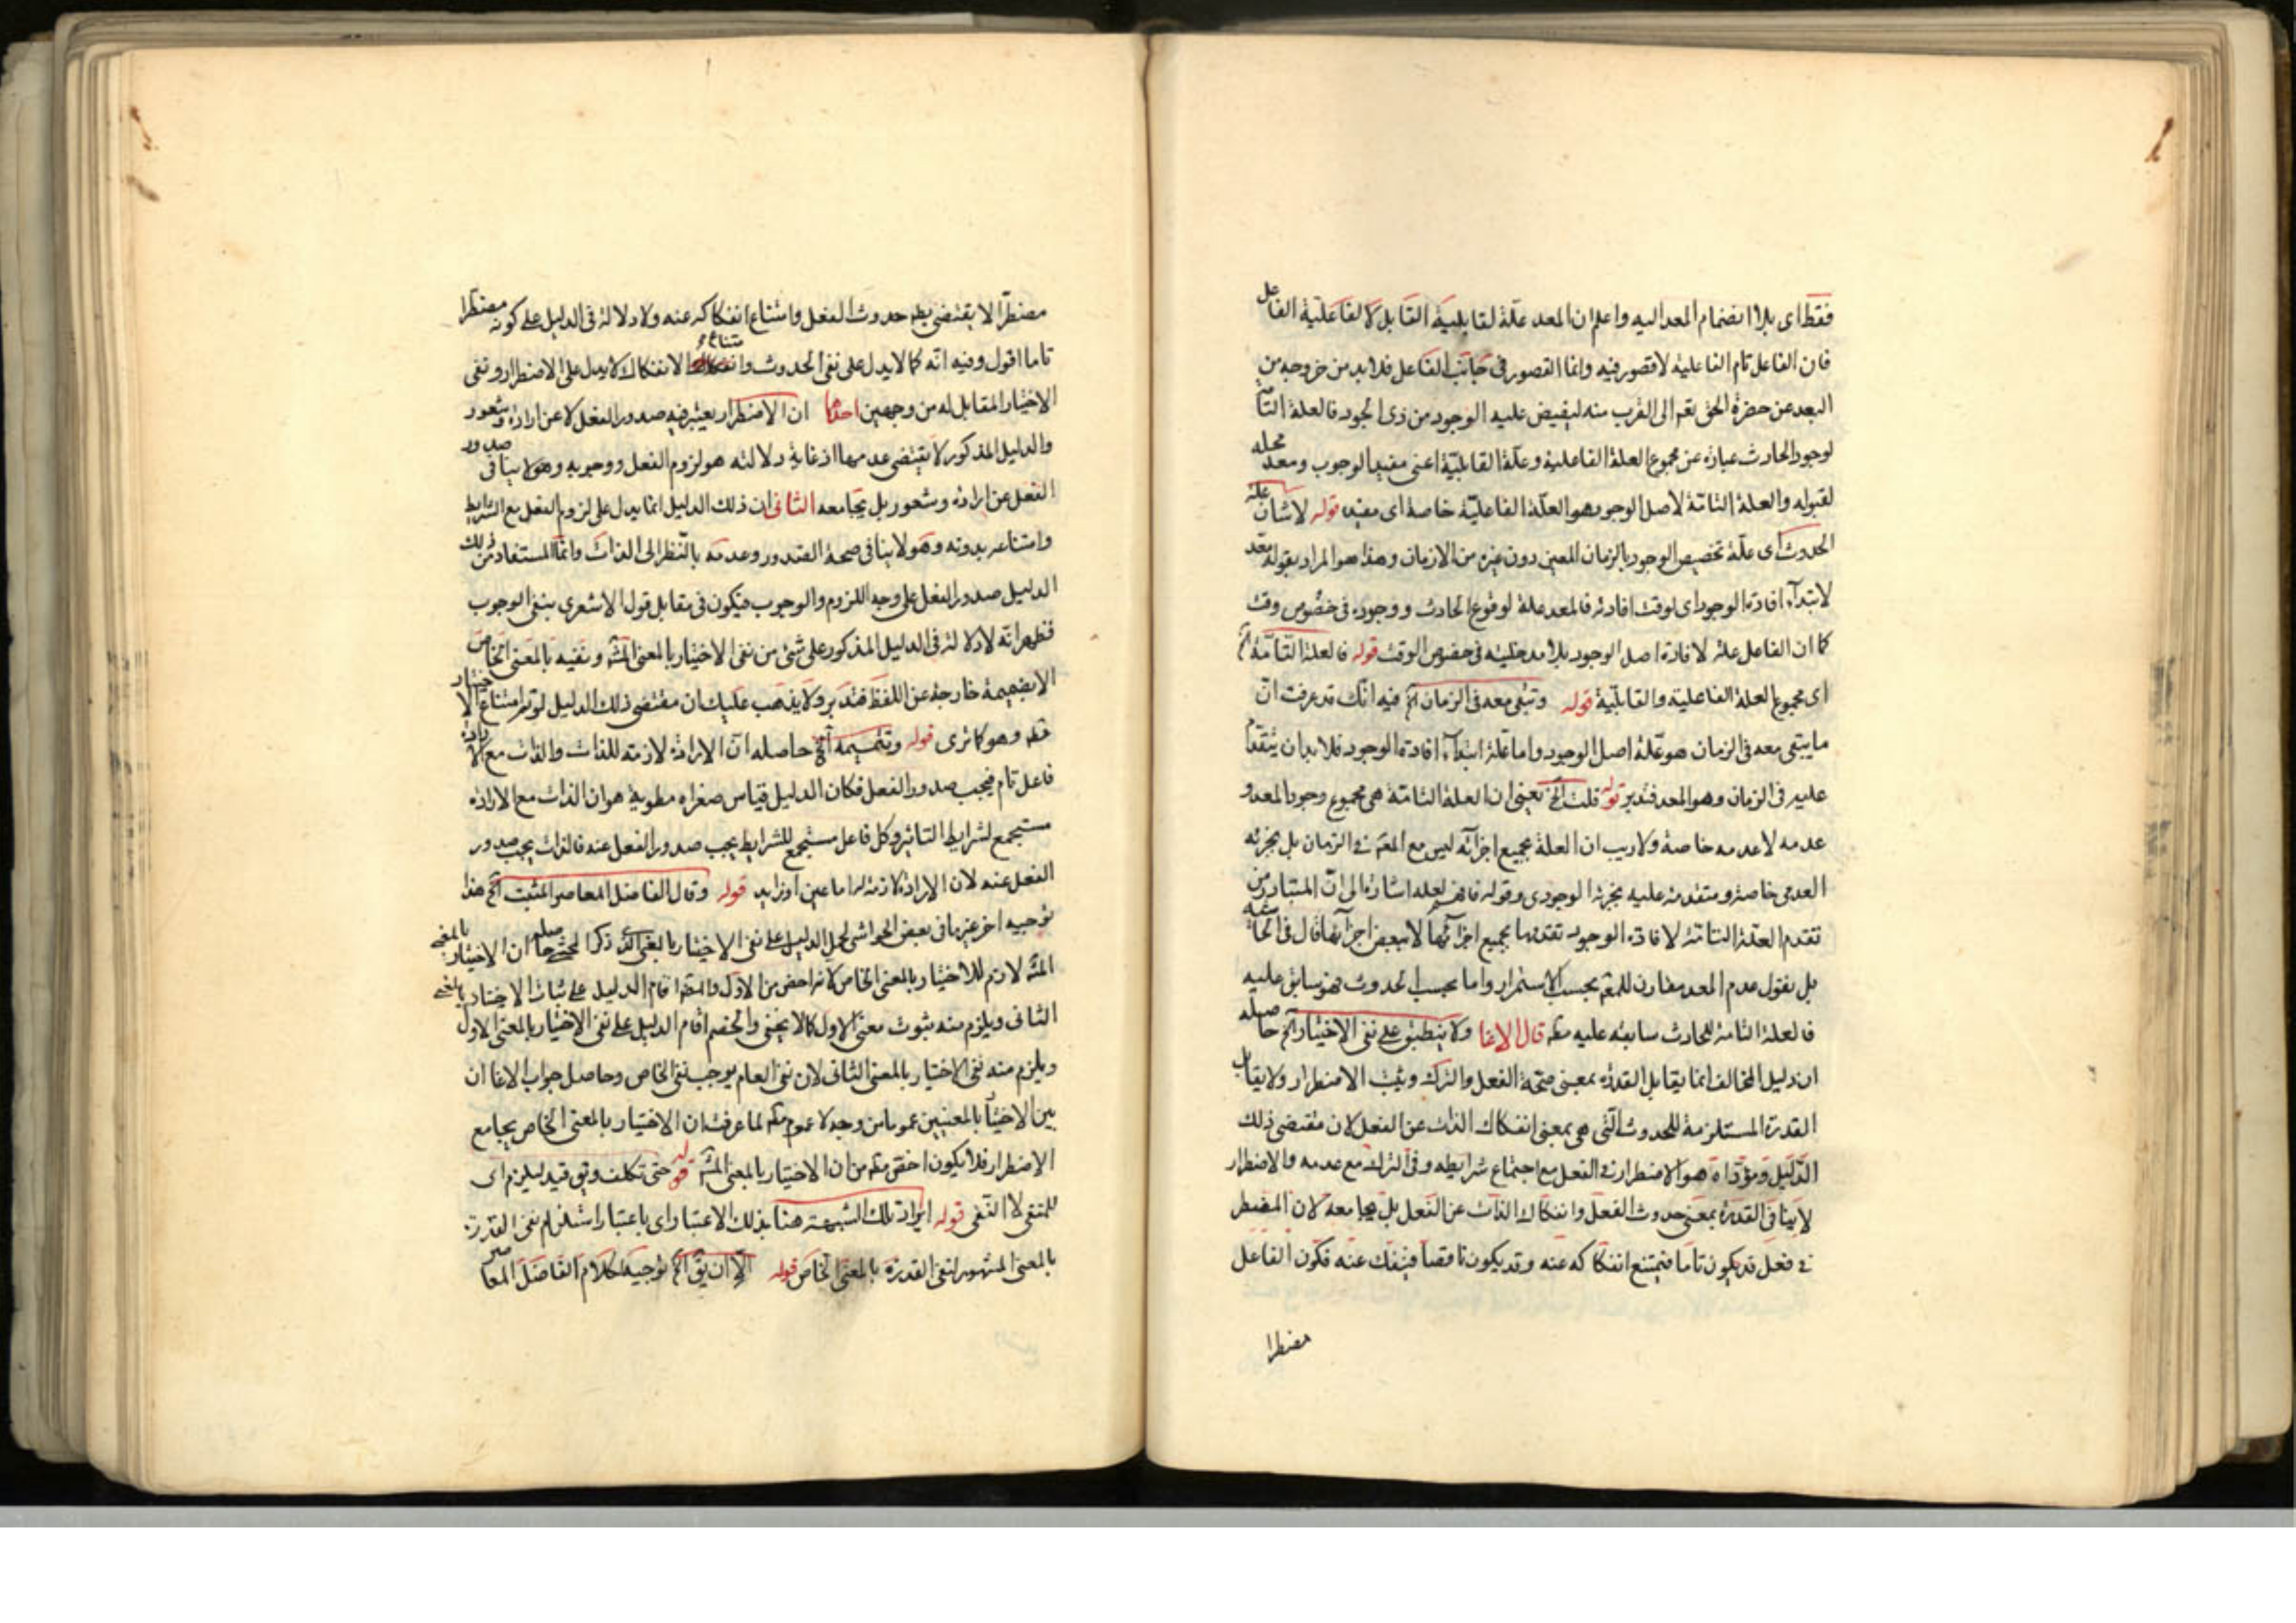 فقط اى بلا انضمام المعد اليه واعلم ان المعد علة لقابلية القابل لا لفاعلية الفاعل
فان الفاعل تام الفاعلية لا قصور فيه وانما القصور فى جانب القابل فلابد من خروجه من
البعد عن حضرة الحق تعم الى القرب منه ليفيض عليه الوجود من ذى الجود فالعلة التامة
لوجود الحادث عبارة عن مجموع العلة الفاعلية وعلة القابلية اعنى مفيد الوجوب ومعد محله
لقبوله والعلة التامة لاصل الوجود هو العلة الفاعلية خاصة اى مفيده قوله لا شان علة
الحدوث اى علة تخصيص الوجود بالزمان المعين دون غيره من الازمان وهذا هو المراد بقوله بعد
لابتداء افادة الوجود اى لوقت افادته فالمعد علة لوقوع الحادث ووجوده فى خصوص وقت
كما ان الفاعل علة لافادة اصل الوجود بلا مدخلية فى خصوص الوقت قوله فالعلة التامة الخ
اى مجموع العلة الفاعلية والقابلية قوله وتبقى معه فى الزمان الخ فيه انك قد عرفت ان
ما يبقى معه فى الزمان هو علة اصل الوجود واما علة ابتداء افادة الوجود فلا بد ان يتقدم
عليه فى الزمان وهو المعد فتدبر قوله قلت الخ يعنى ان العلة التامة هى مجموع وجود المعد و
عدمه لا عدمه خاصة ولا ريب ان العلة بجميع اجزائه ليس مع المعم فى الزمان بل بجزئه
العدمى خاصة ومتقدمة عليه بجزئه الوجودى وقوله فافهم لعله اشارة الى ان المتبادر من
تقدم العلة التامة لافادة الوجود تقدمها بجميع اجزائها لا ببعض اجزائها قال فى الحاشية
بل نقول عدم المعد مقارن للمعم بحسب الاستمرار واما بحسب الحدوث فهو سابق عليه
فالعلة التامة للحادث سابقة عليه مطم قال الاغا ولا ينطبق على نفى الاختيار الخ حاصله
ان دليل المخالف انما يقابل القدرة بمعنى صحة الفعل والترك ويثبت الاضطرار ولا يقابل
القدرة المستلزمة للحدوث التى هى بمعنى انفكاك الذات عن الفعل لان مقتضى ذلك
الدليل ومؤداه هو الاضطرار فى الفعل مع اجتماع شرايطه وفى الترك مع عدمه والاضطرار
لا ينافى القدرة بمعنى حدوث الفعل وانفكاك الذات عن الفعل بل يجامعه لان المضطر
فى فعل قد يكون تاما فيمتنع انفكاكه عنه وقد يكون ناقصا فينفك عنه فكون الفاعل
مضطرا
مضطرا لا يقتضى حدوث الفعل وامتناع انفكاكه عنه ولا دلالة فى الدليل على كونه مضطرا
تاما اقول وفيه انه كما لا يدل على نفى الحدوث وامتناع الانفكاك لا يدل على الاضطرار ونفى
الاختيار المقابل له من وجهين احدهما ان الاضطرار يعتبر فيه صدور الفعل لا عن ارادة وشعور
والدليل المذكور لا يقتضى عدمها اذ غاية دلالته هو لزوم الفعل ووجوبه وهو لا ينافى صدور
الفعل عن ارادة وشعور بل يجامعه الثانى ان ذلك الدليل انما يدل على لزوم الفعل مع الشرايط
وامتناعه بدونه وهو لا ينافى صحة الصدور وعدمه بالنظر الى الذات وانما المستفاد من ذلك
الدليل صدور الفعل على وجه اللزوم والوجوب فيكون فى مقابل قول الاشعرى بنفى الوجوب
فظهر انه لا دلالة فى الدليل المذكور على شئ من نفى الاختيار بالمعنى المشه ونفيه بالمعنى الخاص
الا بضميمة خارجة عن اللفظ فتدبر ولا يذهب عليك ان مقتضى ذلك الدليل لو تم امتناع الاختيار
مطم وهو كما ترى قوله وتتميمه الخ حاصله ان الارادة لازمة للذات والذات مع الارادة
فاعل تام فيجب صدور الفعل فكان الدليل قياس صغراه مطوية هو ان الذات مع الارادة
مستجمع لشرايط التاثير وكل فاعل مستجمع للشرايط يجب صدور الفعل عنه فالذات يجب صدور
الفعل عنه لان الارادة لازمة له اما عين او زايد قوله وقال الفاضل المعاصر المثبت الخ هذا
توجيه اخر غير ما فى بعض الحواشى لحمل الدليل على نفى الاختيار بالمعنى الذى ذكره المحشى حاصله ان الاختيار بالمعنى
المشه لازم للاختيار بالمعنى الخاص لانه اخص من الاول اقام الدليل على ثبات الاختيار بالمعنى
الثانى ويلزم منه ثبوت معنى الاول كما لا يخفى والخصم اقام الدليل على نفى الاختيار بالمعنى الاول
ويلزم منه نفى الاختيار بالمعنى الثانى لان نفى العام يوجب نفى الخاص وحاصل جواب الاغا ان
بين الاختيار بالمعنيين عموما من وجه لا عموم مطم لما عرفت ان الاختيار بالمعنى الخاص يجامع
الاضطرار فلا يكون اخص مطم من ان الاختيار بالمعنى المشه قوله حتى تكلف وتق قيد ليلزم اى
للمنفى لا النفى قوله ايراد تلك الشبهة هنا بذلك الاعتبار اى باعتبار استلزام نفى القدرة
بالمعنى المشهور لنفى القدرة بالمعنى الخاص قوله الا ان يق الخ توجيه لكلام الفاضل المعاصر